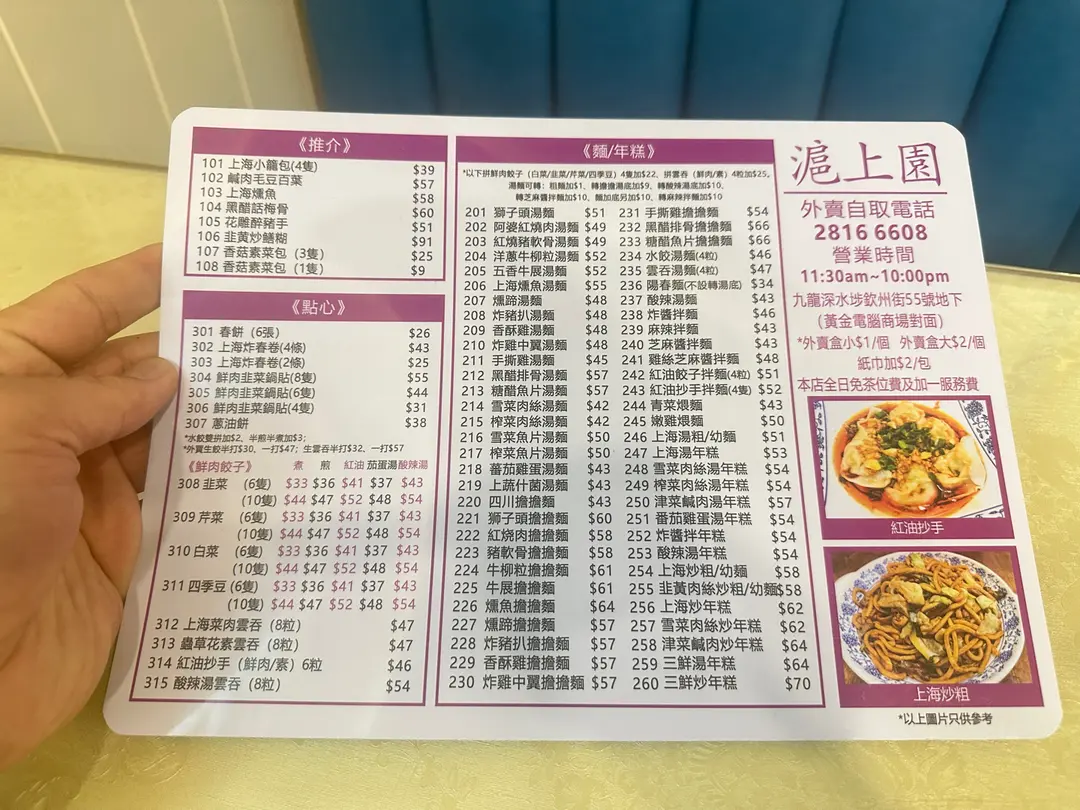 《推介》
101 上海小籠包(4隻) $39
102 鹹肉毛豆百葉 $57
103 上海燻魚 $58
104 黑醋話梅骨 $60
105 花雕醉豬手 $51
106 韭黄炒鱔糊 $91
107 香菇素菜包（3隻） $25
108 香菇素菜包（1隻） $9
《點心》
301 春餅（6張） $26
302 上海炸春卷(4條) $43
303 上海炸春卷(2條) $25
304 鮮肉韭菜鍋貼(8隻) $55
305 鮮肉韭菜鍋貼(6隻) $44
306 鮮肉韭菜鍋貼(4隻) $31
307 蔥油餅 $38
*水餃雙拼加$2、半煎半煮加$3;
*外賣生餃半打$30、一打$47; 生雲吞半打$32、一打$57
《鮮肉餃子》 煮 煎 紅油 茄蛋湯 酸辣湯
308 韭菜 (6隻) $33 $36 $41 $37 $43
(10隻) $44 $47 $52 $48 $54
309 芹菜 (6隻) $33 $36 $41 $37 $43
(10隻) $44 $47 $52 $48 $54
310 白菜 (6隻) $33 $36 $41 $37 $43
(10隻) $44 $47 $52 $48 $54
311 四季豆 (6隻) $33 $36 $41 $37 $43
(10隻) $44 $47 $52 $48 $54
312 上海菜肉雲吞（8粒） $47
313 蟲草花素雲吞（8粒） $47
314 紅油抄手（鮮肉/素）6粒 $46
315 酸辣湯雲吞（8粒） $54
《麵/年糕》
*以下拼鮮肉餃子（白菜/韭菜/芹菜/四季豆）4隻加$22、拼雲吞（鮮肉/素）4粒加$25。
湯麵可轉：粗麵加$1、轉擔擔湯底加$9、轉酸辣湯底加$10、
轉芝麻醬拌麵加$10、麵加底另加$10、轉麻辣拌麵加$10
201 獅子頭湯麵 $51
202 阿婆紅燒肉湯麵 $49
203 紅燒豬軟骨湯麵 $49
204 洋蔥牛柳粒湯麵 $52
205 五香牛展湯麵 $52
206 上海燻魚湯麵 $55
207 燻蹄湯麵 $48
208 炸豬扒湯麵 $48
209 香酥雞湯麵 $48
210 炸雞中翼湯麵 $48
211 手撕雞湯麵 $45
212 黑醋排骨湯麵 $57
213 糖醋魚片湯麵 $57
214 雪菜肉絲湯麵 $42
215 榨菜肉絲湯麵 $42
216 雪菜魚片湯麵 $50
217 榨菜魚片湯麵 $50
218 蕃茄雞蛋湯麵 $43
219 上蔬什菌湯麵 $43
220 四川擔擔麵 $43
221 獅子頭擔擔麵 $60
222 紅燒肉擔擔麵 $58
223 豬軟骨擔擔麵 $58
224 牛柳粒擔擔麵 $61
225 牛展擔擔麵 $61
226 燻魚擔擔麵 $64
227 燻蹄擔擔麵 $57
228 炸豬扒擔擔麵 $57
229 香酥雞擔擔麵 $57
230 炸雞中翼擔擔麵 $57
231 手撕雞擔擔麵 $54
232 黑醋排骨擔擔麵 $66
233 糖醋魚片擔擔麵 $66
234 水餃湯麵(4粒) $46
235 雲吞湯麵(4粒) $47
236 陽春麵(不設轉湯底) $34
237 酸辣湯麵 $43
238 炸醬拌麵 $46
239 麻辣拌麵 $43
240 芝麻醬拌麵 $43
241 雞絲芝麻醬拌麵 $48
242 紅油餃子拌麵(4粒) $51
243 紅油抄手拌麵(4隻) $52
244 青菜煨麵 $43
245 嫩雞煨麵 $50
246 上海湯粗/幼麵 $51
247 上海湯年糕 $53
248 雪菜肉絲湯年糕 $54
249 榨菜肉絲湯年糕 $54
250 津菜鹹肉湯年糕 $57
251 番茄雞蛋湯年糕 $54
252 炸醬年糕 $54
253 酸辣湯年糕 $54
254 上海炒粗/幼麵 $58
255 韭黃肉絲炒粗/幼麵 $58
256 上海炒年糕 $62
257 雪菜肉絲炒年糕 $62
258 津菜鹹肉炒年糕 $64
259 三鮮湯年糕 $64
260 三鮮炒年糕 $70
滬上園
外賣自取電話
2816 6608
營業時間
11:30am~10:00pm
九龍深水埗欽州街55號地下
(黃金電腦商場對面)
*外賣盒小$1/個 外賣盒大$2/個
紙巾加$2/包
本店全日免茶位費及加一服務費
紅油抄手
上海炒粗
*以上圖片只供參考